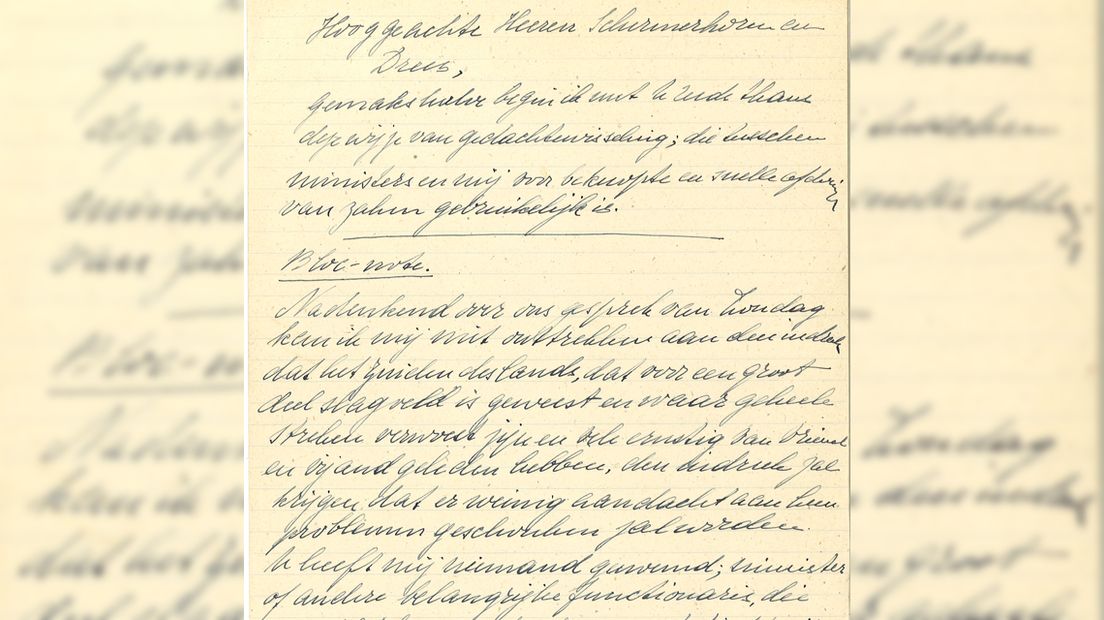 Hooggeachte Heeren Schermerhorn en
Drees,
gemakshalve begin ik met U reeds thans
deze wijze van gedachtenwisseling; die tusschen
ministers en mij voor beknopte en snelle afdoening
van zaken gebruikelijk is.
Bloc-note.
Nadenkend over ons gesprek van Zondag
kan ik mij niet onttrekken aan den indruk
dat het Zuiden des lands, dat voor een groot
deel slagveld is geweest en waar geheele
streken verwoest zijn en vele ernstig van vriend
en vijand geleden hebben, den indruk zal
krijgen, dat er weinig aandacht aan hun
problemen geschonken zal worden.
U heeft mij niemand genoemd; minister
of andere belangrijke functionaris, die